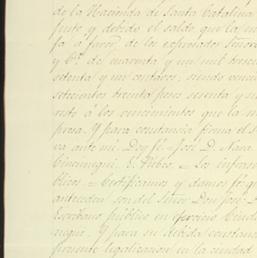 de la Hacienda de Santa Catalina
junto y debido el saldo que la m
fa á favor de los expresados Señore
y Cª de cuarenta y un mil trescie
setenta y un centavos; siendo venci
setecientos treinta pesos sesenta y
resto á los vencimientos que la m
presa. Y para constancia firma el S
va ante mi. Doy fé = José D. Nava
Cincunegui. E. Púbco = Los infras
blicos = Certificamos y damos fé: q
anteceden son del Señor Don José D
Escribano público en ejercicio Ciuda
negui. Y para su debida constanc
presente legalizacion en la ciudad